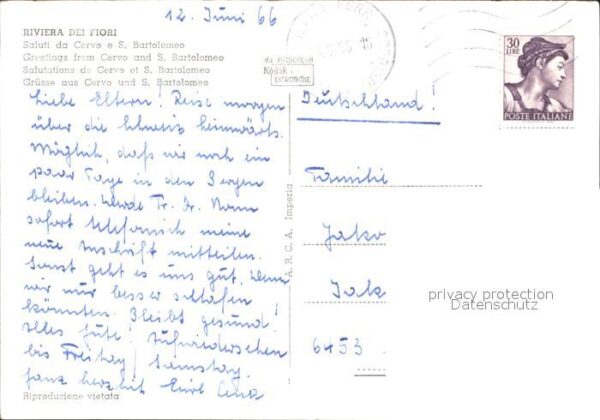 12. Juni 66
RIVIERA DEI FIORI
Saluti da Cervo e S. Bartolomeo
Greetings from Cervo and S. Bartolomeo
Salutations de Cervo et S. Bartolomeo
Grüsse aus Cervo und S. Bartolomeo
Kodak
30
LIRE
POSTE ITALIANE
Liebe Eltern! Reise morgen
über die Schweiz heimwärts.
Möglich, daß wir noch ein
paar Tage in den Bergen
bleiben. Werde Fr.
sofort telefonisch meine
neue Anschrift mitteilen.
Sonst geht es uns gut, wenn
wir nur besser schlafen
könnten. Bleibt gesund!
Alles Gute! Aufwiedersehen
bis Freitag / Samstag.
Ganz herzlich Eure
Riproduzione vietata
A.B.C.A. Imperia
Deutschland!
Familie
Jako
Jak
6453
privacy protection
Datenschutz